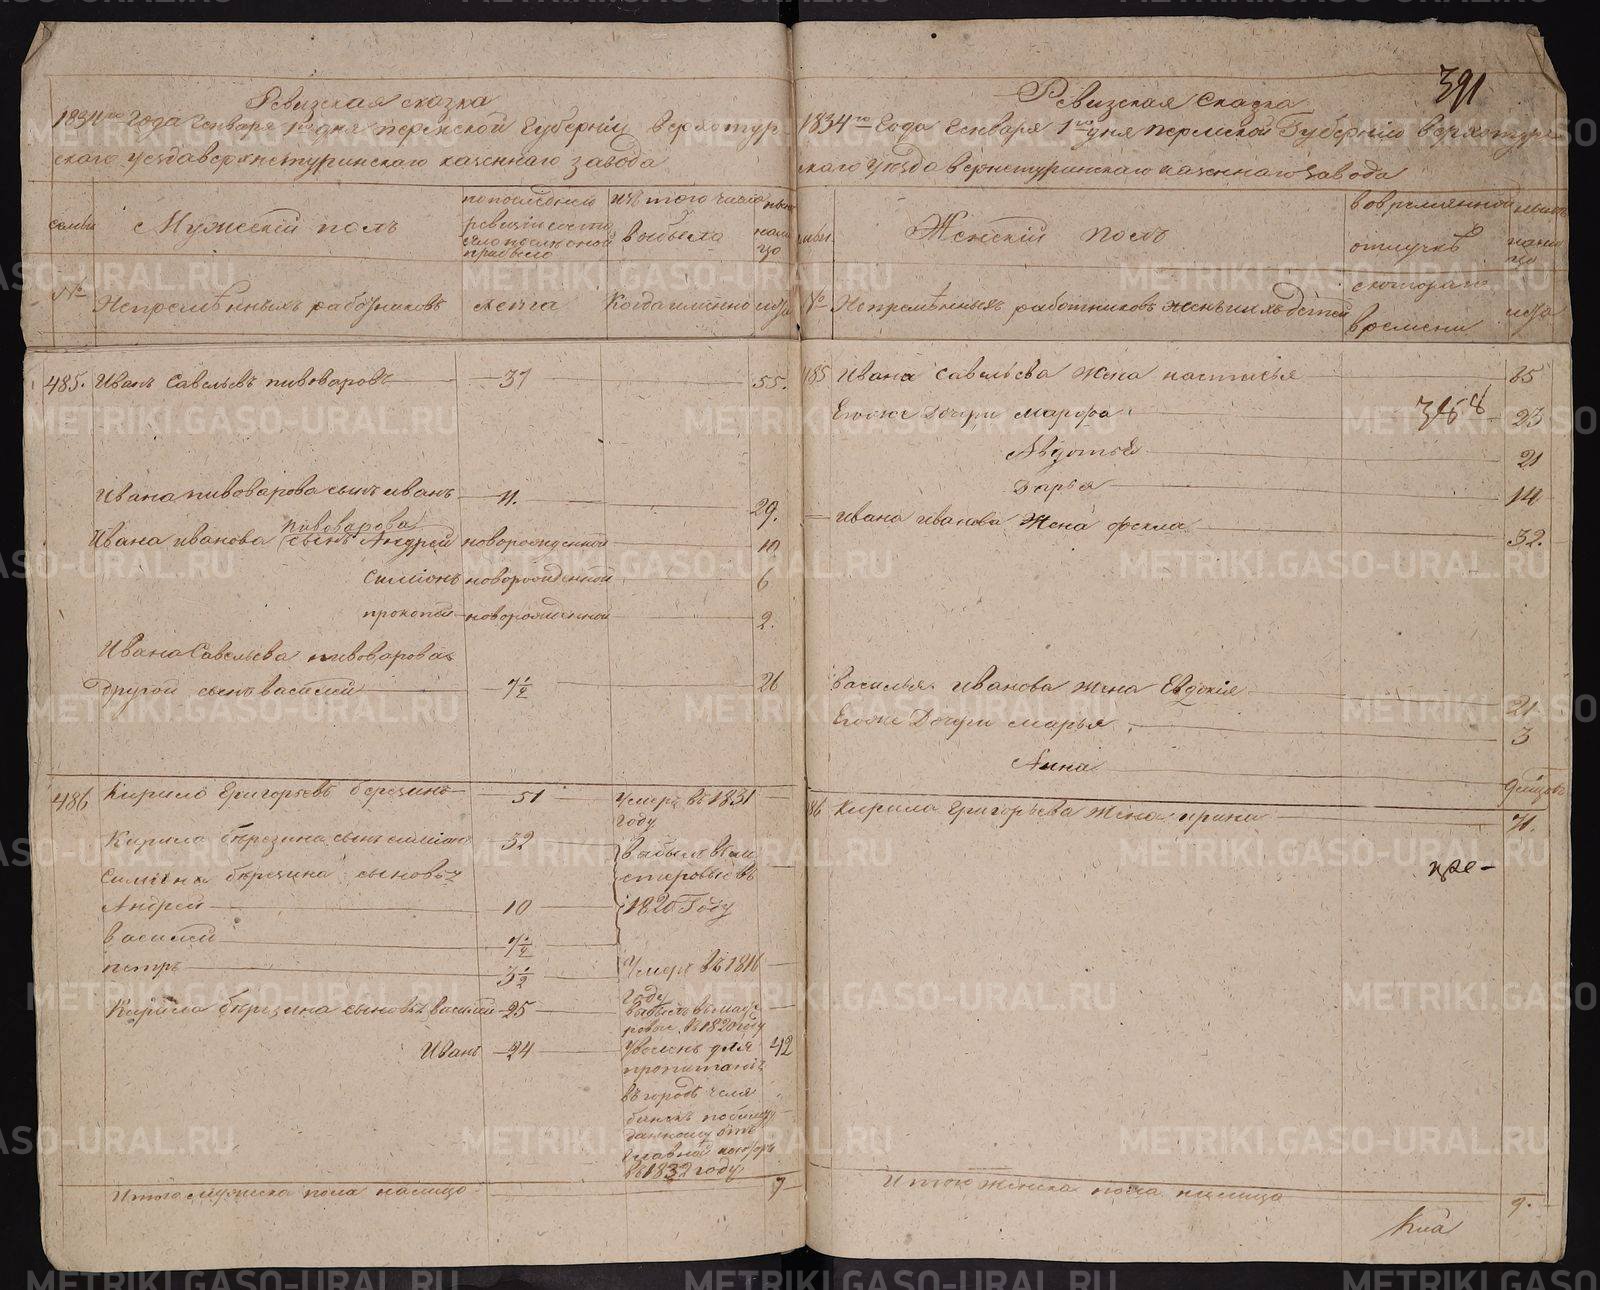 391
Ревизская сказка
1834го года Генваря 1го дня пермской Губернии верхотур-
скаго уезда верхнетуринскаго казеннаго завода
семьи
Мужеский полъ
по последней
ревизии состо
яло и после оной
прибыло
изъ того числа
выбыло
ныне
нали
цо
№
Непременныхъ работниковъ
лета
Когда именно
лета
485. Иванъ Савельевъ пивоваровъ 37 55.
Ивана пивоварова сынъ иванъ 11. 29.
пивоварова
Ивана иванова сынъ Андрей новорожденной 10
симионъ новорожденной 6
прокопей новорожденной 2.
Ивана Савельева пивоварова
другой сынъ василей 7 1/2 26
486 Кирило Григорьевъ березинъ 51 умеръ въ 1831
году
Кирила березина сынъ симионъ 32
симиона березина сыновья
Андрей 10 1820 Году
василей 7 1/2
петръ 3 1/2 умеръ въ 1816
году
Кирила березина сыновья василей 25
въ 1820 году
Иванъ 24 уволенъ для 42
пропитания
въ городъ челя
бинскъ по билету
данному отъ
главной конторы
въ 1832 году
Итого мужеска пола налицо 7
Ревизская Сказка
1834го Года Генваря 1го дня пермской Губернии верхотур-
скаго уезда верхнетуринскаго казеннаго завода
семьи
Женский полъ
во временной
отлучке
с котораго
времени
ныне
нали
цо
№
Непременныхъ работниковъ жены и ихъ дети
лета
485 Ивана Савельева жена настасья 85
Егоже Дочери марфа 23
Авдотья 21
Дарья 14
Ивана иванова жена фекла 32.
Василья Иванова жена Евдокия 21
Егоже Дочери марья 3
Анна 9 месяцовъ
486 Кирила Григорьева жена ирина 71.
Итого женска пола налицо 9.
METRIKI.GASO-URAL.RU